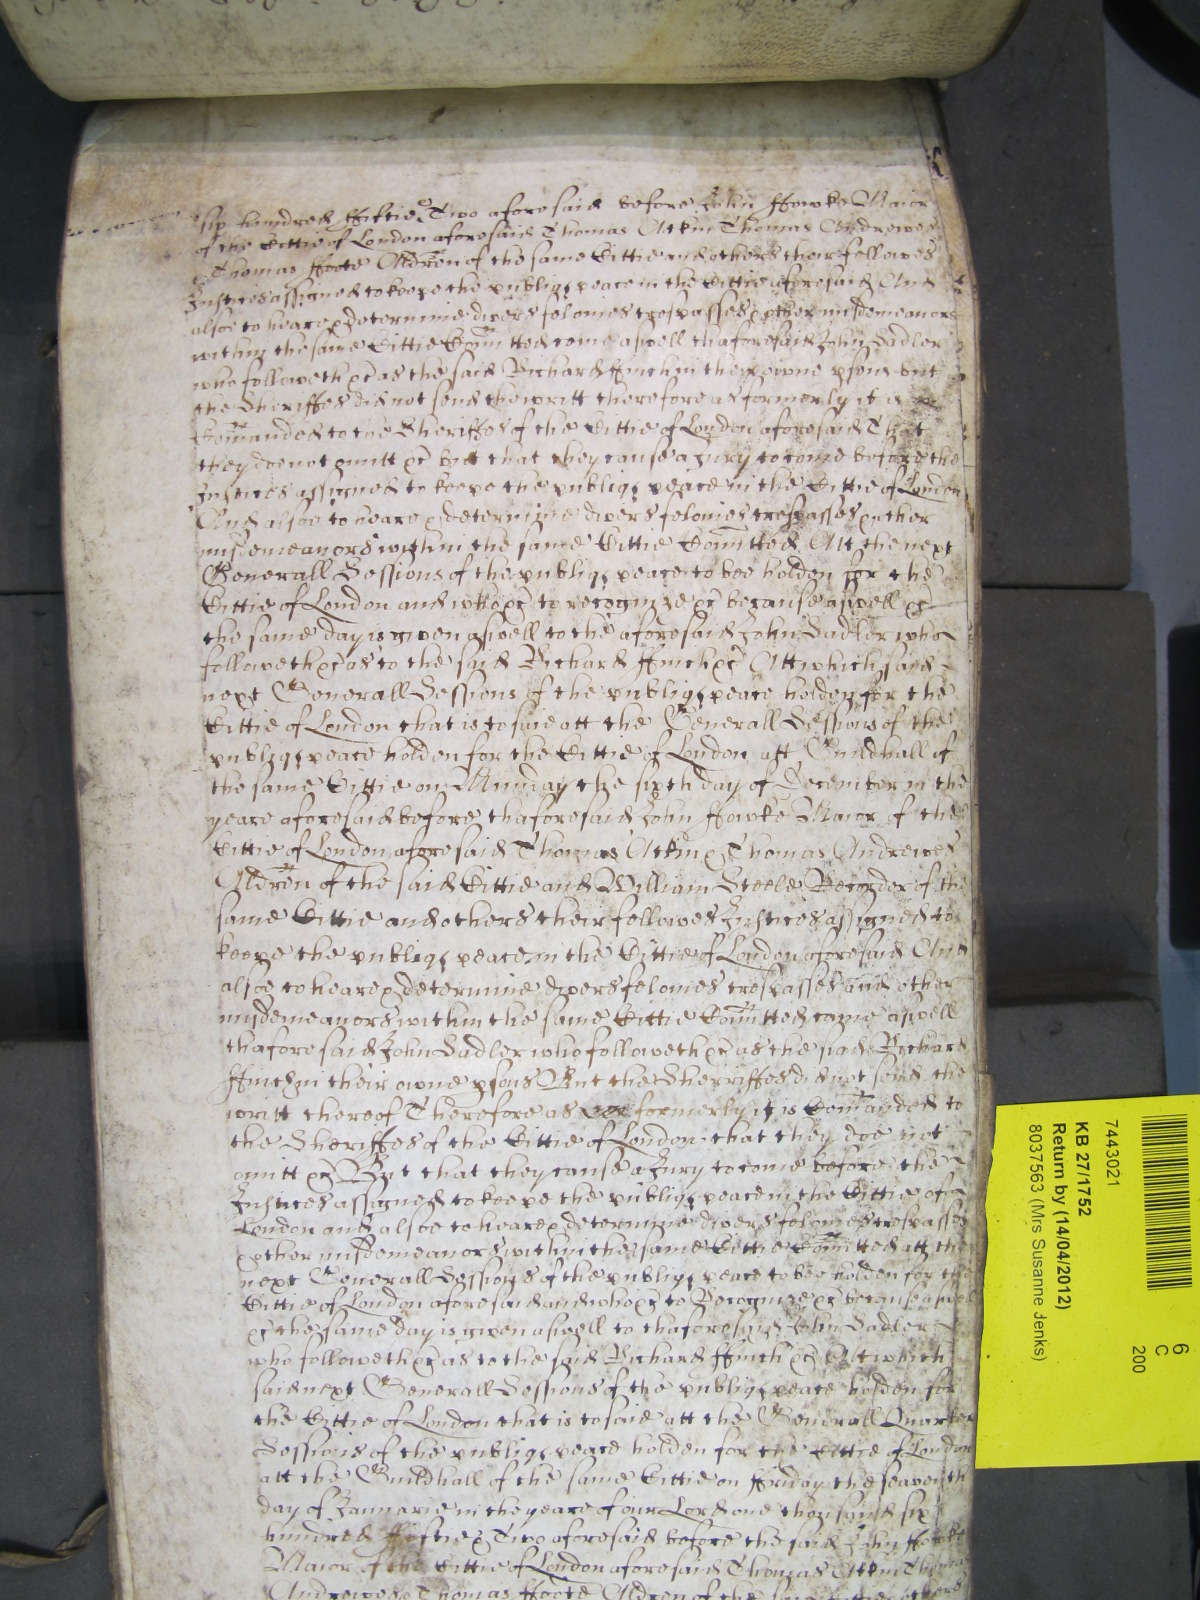 six hundred ffiftie Two aforesaid before John ffowke Maior
of the Cittie of London aforesaid Thomas Atkin Thomas Andrewes
Thomas ffoote Aldren of the same Cittie and others their followes
Justices assigned to keepe the publiq peace in the Cittie aforesaid And
alsoe to heare & determine divers felonies trespasses & other misdemeanors
within the same Cittie Comitted come aswell thaforesaid John Sadler
who followeth &c as the said Richard ffinch in their owne psons but
the Sheriffes did not send the writt therefore as formerly it is
Comanded to the Sheriffes of the Cittie of London aforesaid That
they doe not omitt &c but that they cause a Jury to come before the
Justices assigned to keepe the publiq peace in the Cittie of London
And alsoe to heare & determine divers felonies trespasses & other
misdemeanors within the same Cittie Comitted Att the next
Generall Sessions of the publiq peace to bee holden for the
Cittie of London and who &c to recognize &c because aswell &c
the same day is given aswell to the aforesaid John Sadler who
followeth &c as to the said Richard ffinch &c Att which said
next Generall Sessions of the publiq peace holden for the
Cittie of London that is to saie att the Generall Sessions of the
publiq peace holden for the Cittie of London att Guildhall of
the same Cittie on Munday the sixth day of December in the
yeare aforesaid before thaforesaid John ffowke Maior of the
Cittie of London aforesaid Thomas Atkin & Thomas Andrewes
Aldren of the said Cittie and William Steele Recorder of the
same Cittie and others their followes Justices assigned to
keepe the publiq peace in the Cittie of London aforesaid And
alsoe to heare & determine divers felonies trespasses and other
misdemeanors within the same Cittie Comitted came aswell
thaforesaid John Sadler who followeth &c as the said Richard
ffinch in their owne psons But the Sherriffes did not send the
writt thereof Therefore as formerly it is Comanded to
the Sheriffes of the Cittie of London that they doe not
omitt &c But that they cause a Jury to come before the
Justices assigned to keepe the publiq peace in the Cittie of
London and alsoe to heare & determine divers felonies trespasses
& other misdemeanors within the same Cittie Comitted att the
next Generall Sessions of the publiq peace to bee holden for the
Cittie of London aforesaid and who &c to Recognize &c because aswell
&c the same day is given aswell to thaforesaid John Sadler
who followeth &c as to the said Richard ffinch &c Att which
said next Generall Sessions of the publiq peace holden for
the Cittie of London that is to saie att the Generall Quarter
Sessions of the publiq peace holden for the Cittie of London
att the Guildhall of the same Cittie on ffriday the seaventh
day of Januarie in the yeare of our Lord one thousand six
hundred ffiftie & Two aforesaid before the said John ffowke
Maior of the Cittie of London aforesaid Thomas Atkin Thomas
Andrewes & Thomas ffoote Aldren of the
7443021
KB 27/1752
Return by (14/04/2012)
8037563 (Mrs Susanne Jenks)
6
C
200